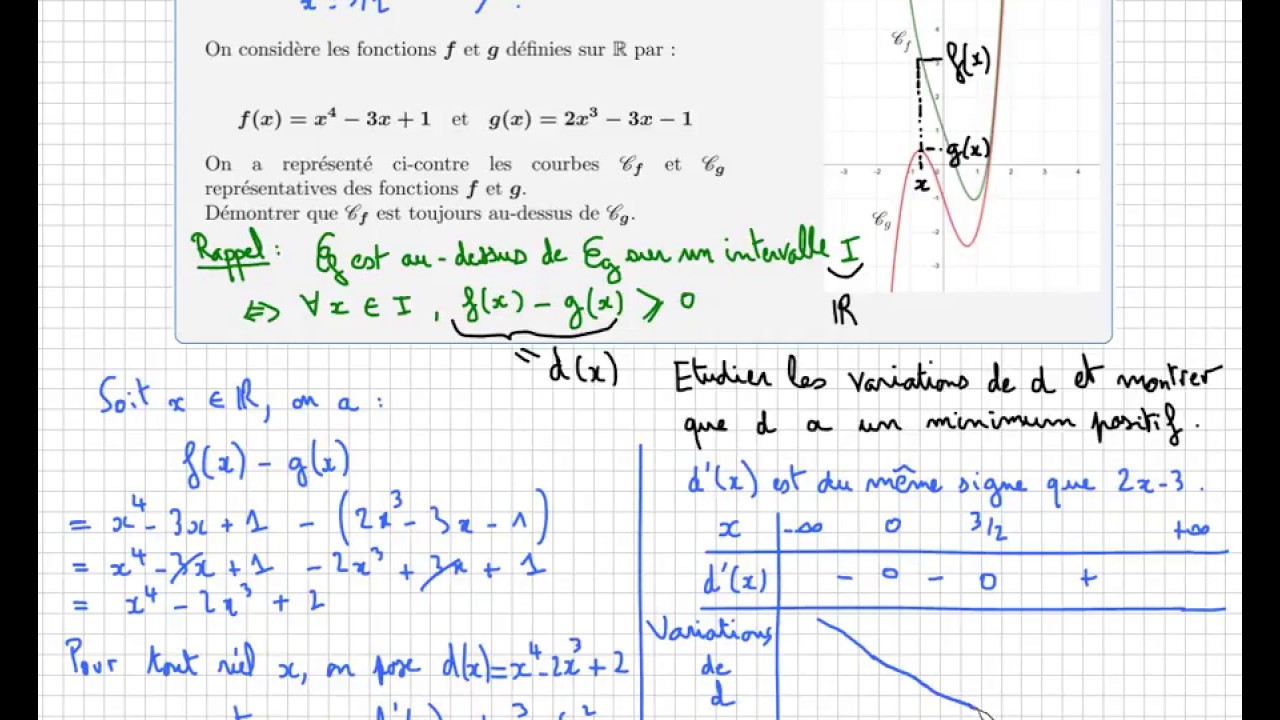 On considère les fonctions f et g définies sur ℝ par :
f(x) = x⁴ − 3x + 1 et g(x) = 2x³ − 3x − 1
On a représenté ci-contre les courbes 𝒞f et 𝒞g
représentatives des fonctions f et g.
Démontrer que 𝒞f est toujours au-dessus de 𝒞g.
𝒞f
f(x)
g(x)
x
𝒞g
-3 -2 1 2 3 4
Rappel : 𝒞f est au-dessus de 𝒞g sur un intervalle I
⇔ ∀ x ∈ I , f(x) − g(x) ⩾ 0
ℝ
= d(x)
Soit x ∈ ℝ, on a :
f(x) − g(x)
= x⁴ − 3x + 1 − (2x³ − 3x − 1)
= x⁴ − 3x + 1 − 2x³ + 3x + 1
= x⁴ − 2x³ + 2
Pour tout réel x, on pose d(x) = x⁴ − 2x³ + 2
Etudier les variations de d et montrer
que d a un minimum positif.
d'(x) est du même signe que 2x−3.
x −∞ 0 3/2 +∞
d'(x) − 0 − 0 +
Variations
de
d